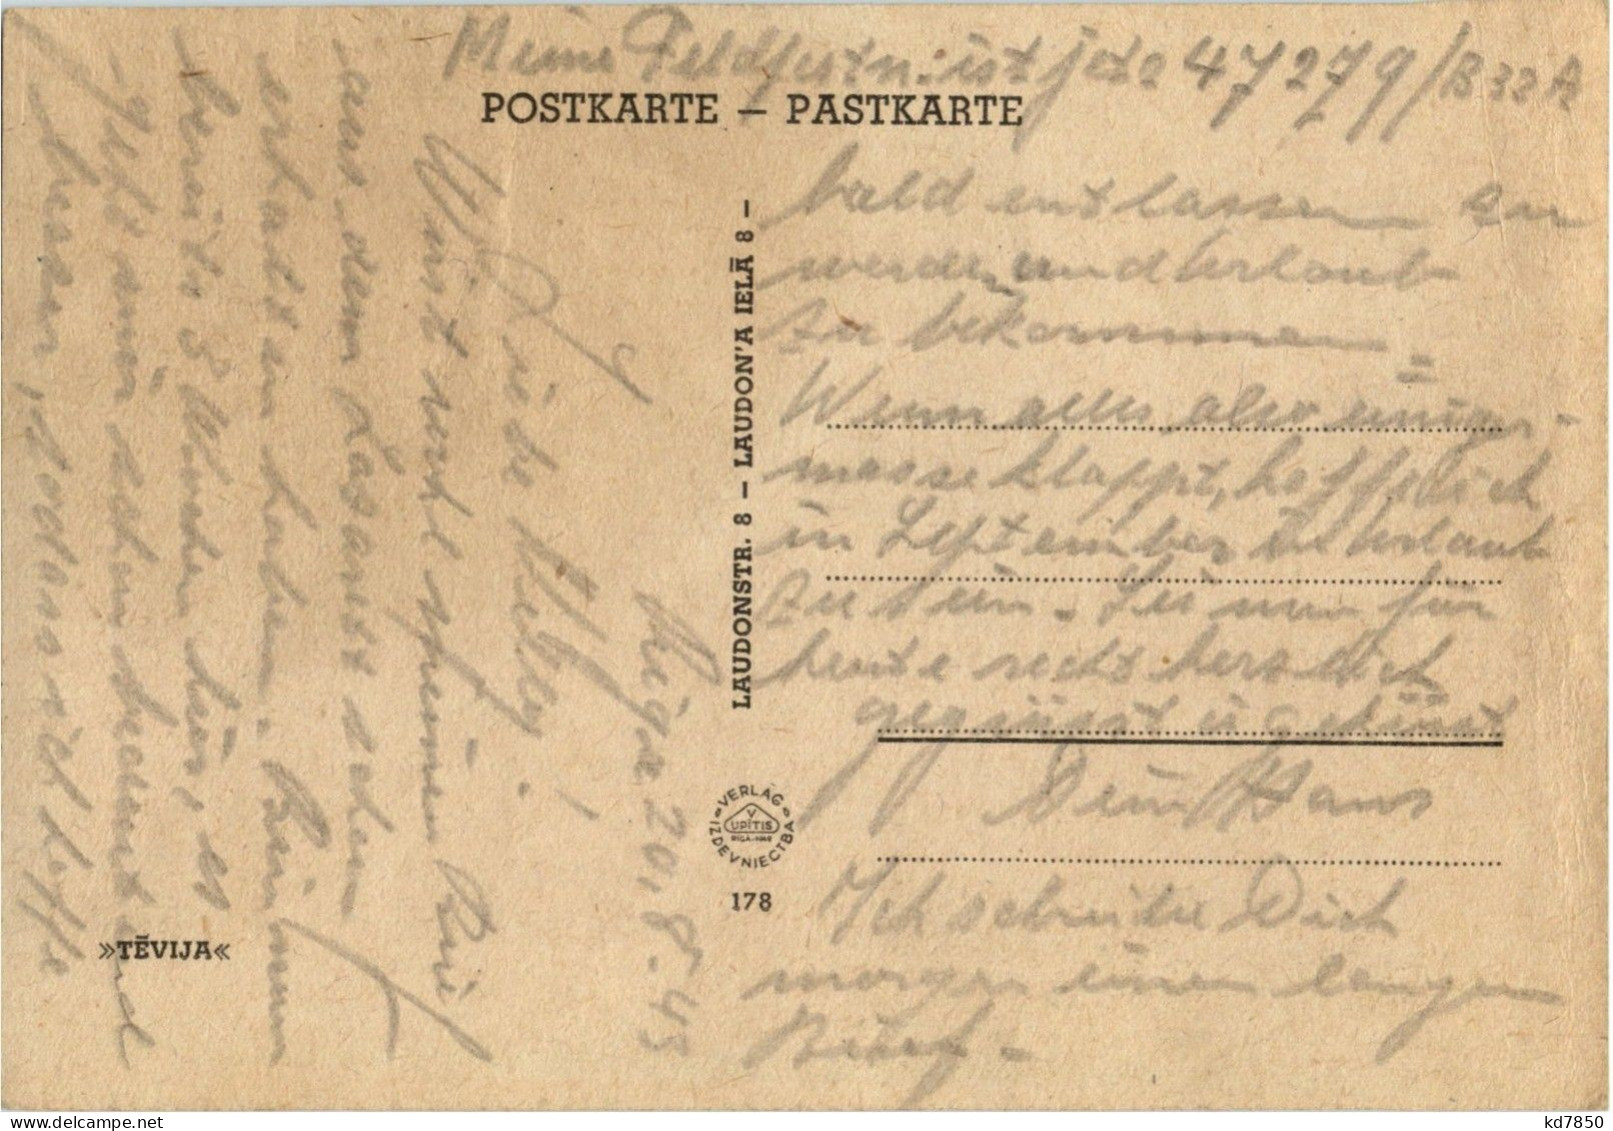 Meine Feldpostn. ist jetz 47279/B 32 A
POSTKARTE — PASTKARTE
Riga 20.8.43
Liebe !
Wirst wohl meinen
aus dem Lazarett schon
erhalten haben. Bin nun
bereits 3 Wochen hier, es
geht mir schon bedeutend
besser, sodass ich hoffe
bald entlassen zu
werden und Urlaub
zu bekommen =
Wenn alles also einiger-
masse klappt, hoffe ich
in September in Urlaub
zu sein. Sei nun für
heute recht herzlich
gegrüsst u geküsst
Dein Hans
Ich schreibe Dich
morgen einen langen
Brief -
LAUDONSTR. 8 — LAUDON'A IELĀ 8 —
VERLAG
V
UPĪTIS
IZDEVNIECTBA
178
»TĒVIJA«
kd7850